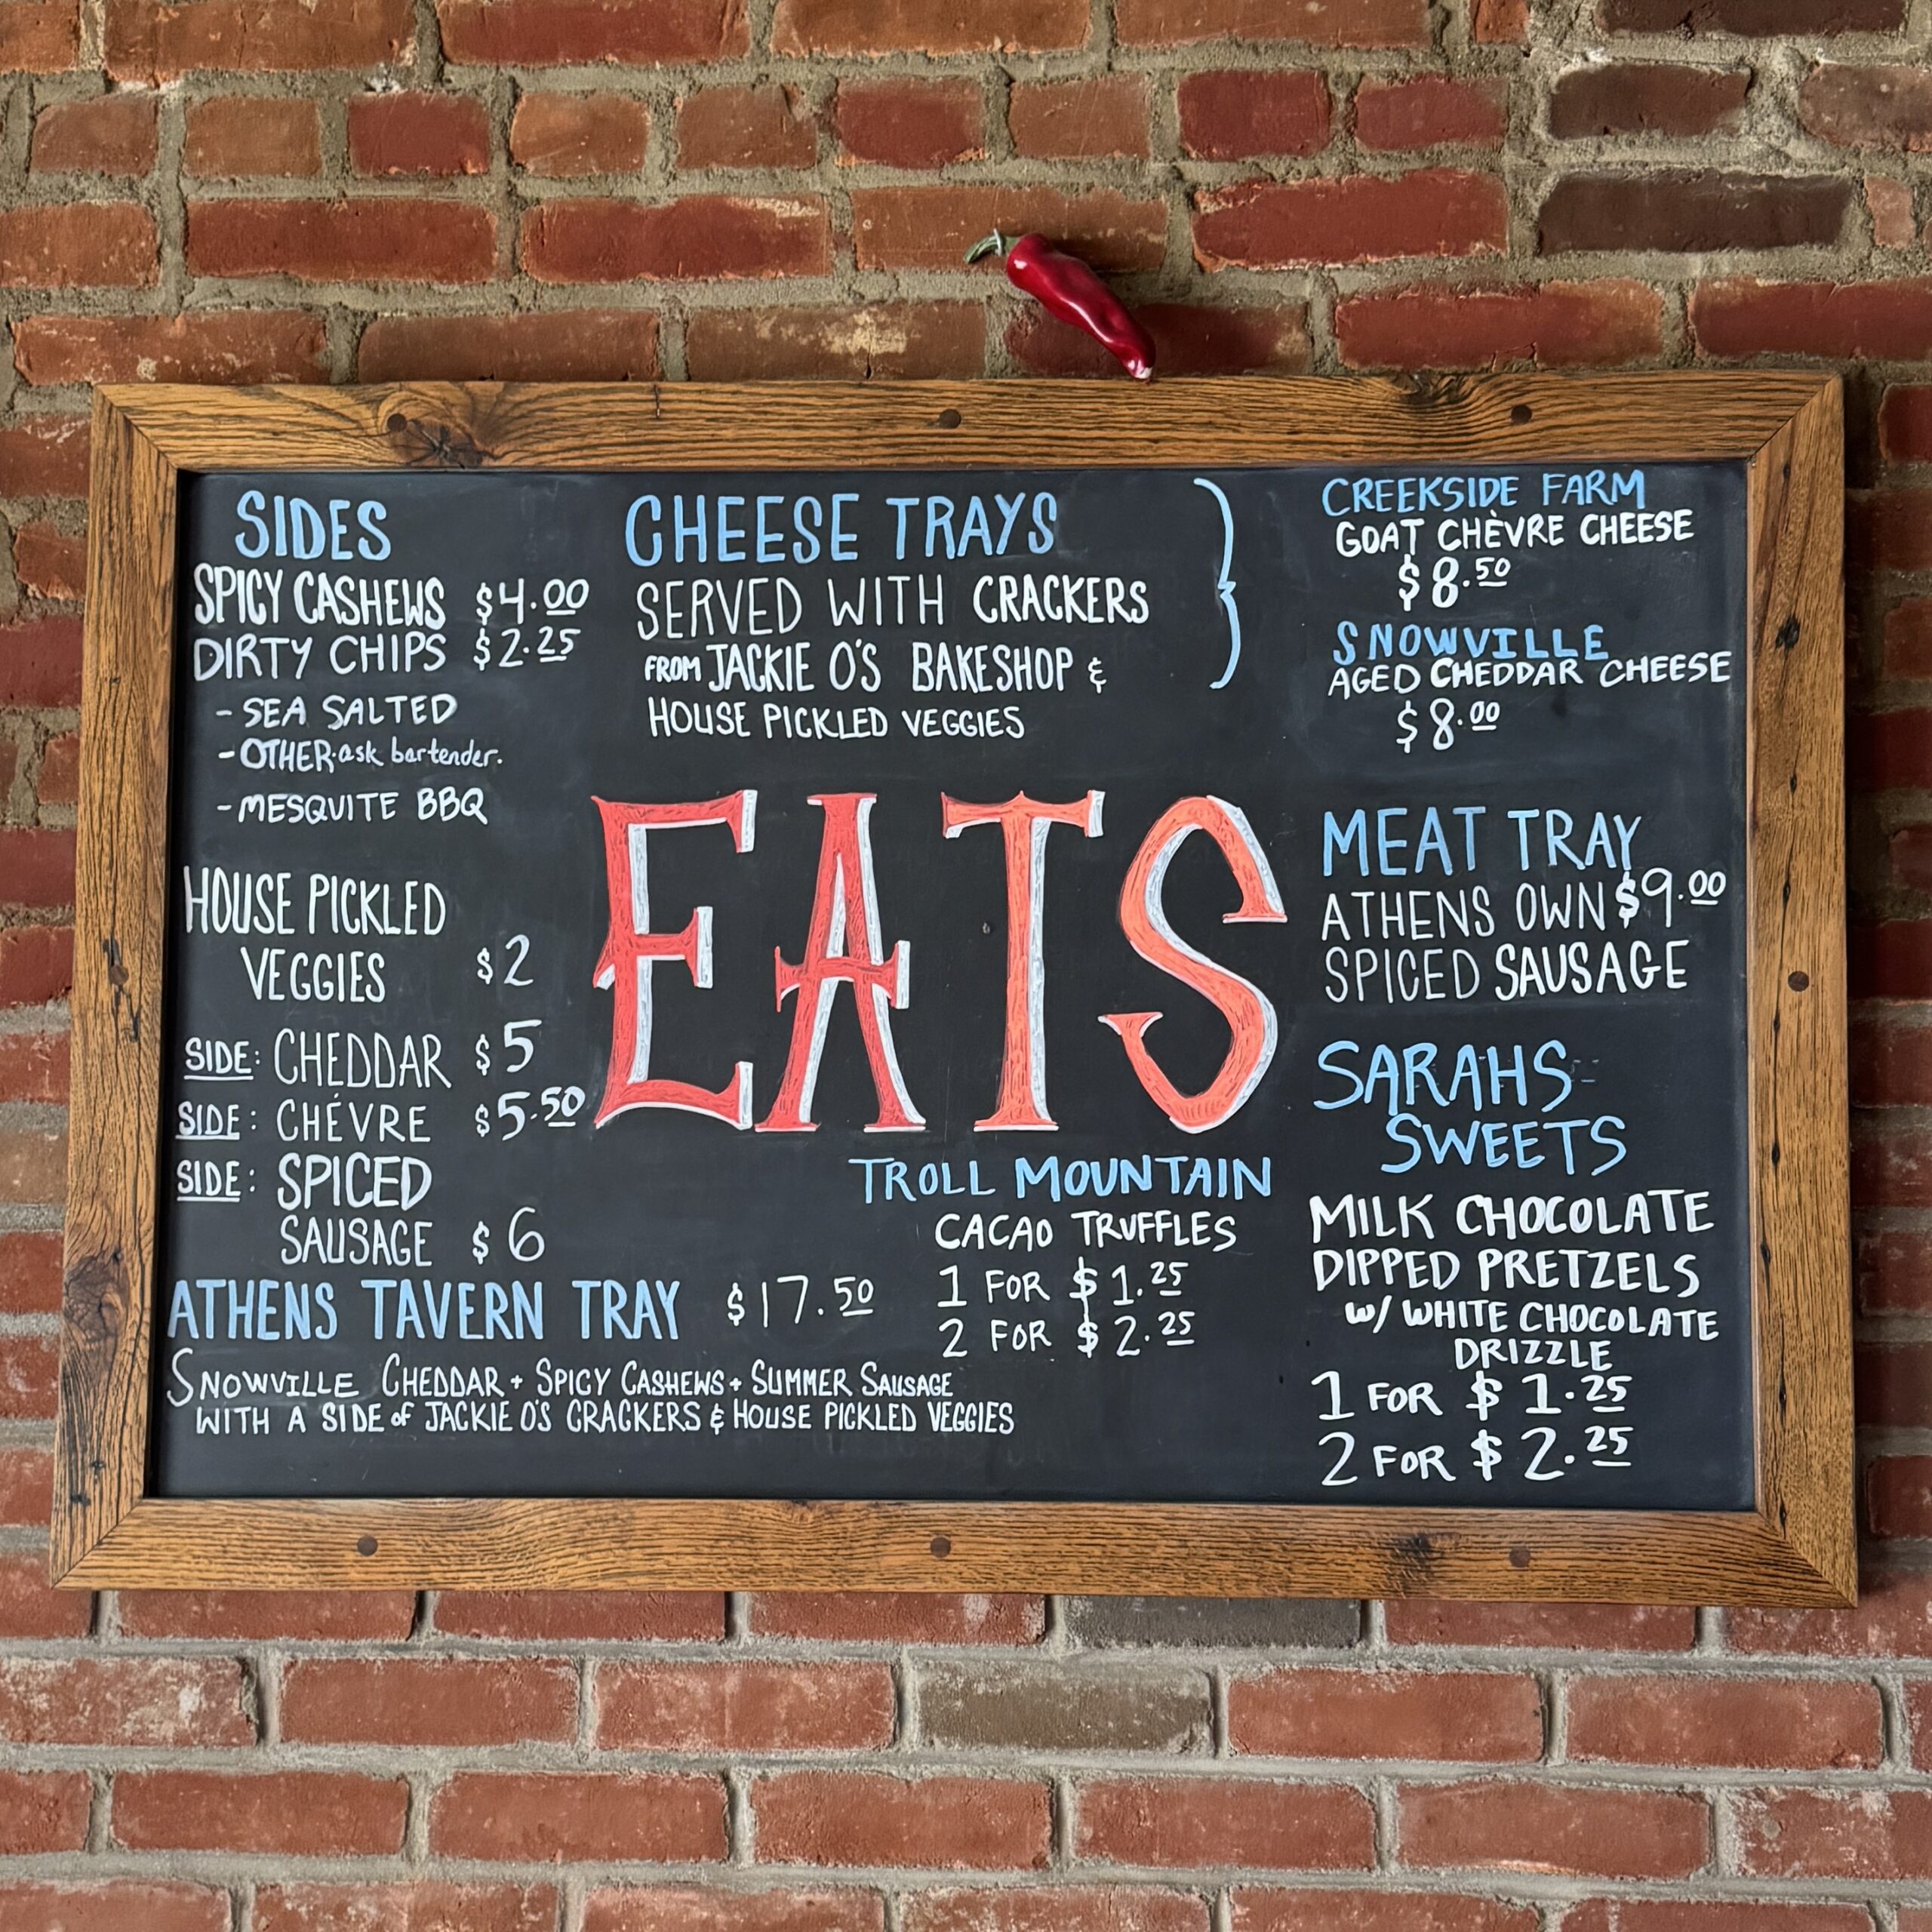 SIDES
SPICY CASHEWS $4.00
DIRTY CHIPS $2.25
- SEA SALTED
- OTHER·ask bartender.
- MESQUITE BBQ
HOUSE PICKLED
VEGGIES $2
SIDE: CHEDDAR $5
SIDE: CHÉVRE $5.50
SIDE: SPICED
SAUSAGE $6
ATHENS TAVERN TRAY $17.50
SNOWVILLE CHEDDAR + SPICY CASHEWS + SUMMER SAUSAGE
WITH A SIDE of JACKIE O'S CRACKERS & HOUSE PICKLED VEGGIES
CHEESE TRAYS
SERVED WITH CRACKERS
FROM JACKIE O'S BAKESHOP &
HOUSE PICKLED VEGGIES
EATS
TROLL MOUNTAIN
CACAO TRUFFLES
1 FOR $1.25
2 FOR $2.25
CREEKSIDE FARM
GOAT CHÈVRE CHEESE
$8.50
SNOWVILLE
AGED CHEDDAR CHEESE
$8.00
MEAT TRAY
ATHENS OWN $9.00
SPICED SAUSAGE
SARAHS
SWEETS
MILK CHOCOLATE
DIPPED PRETZELS
W/ WHITE CHOCOLATE
DRIZZLE
1 FOR $1.25
2 FOR $2.25